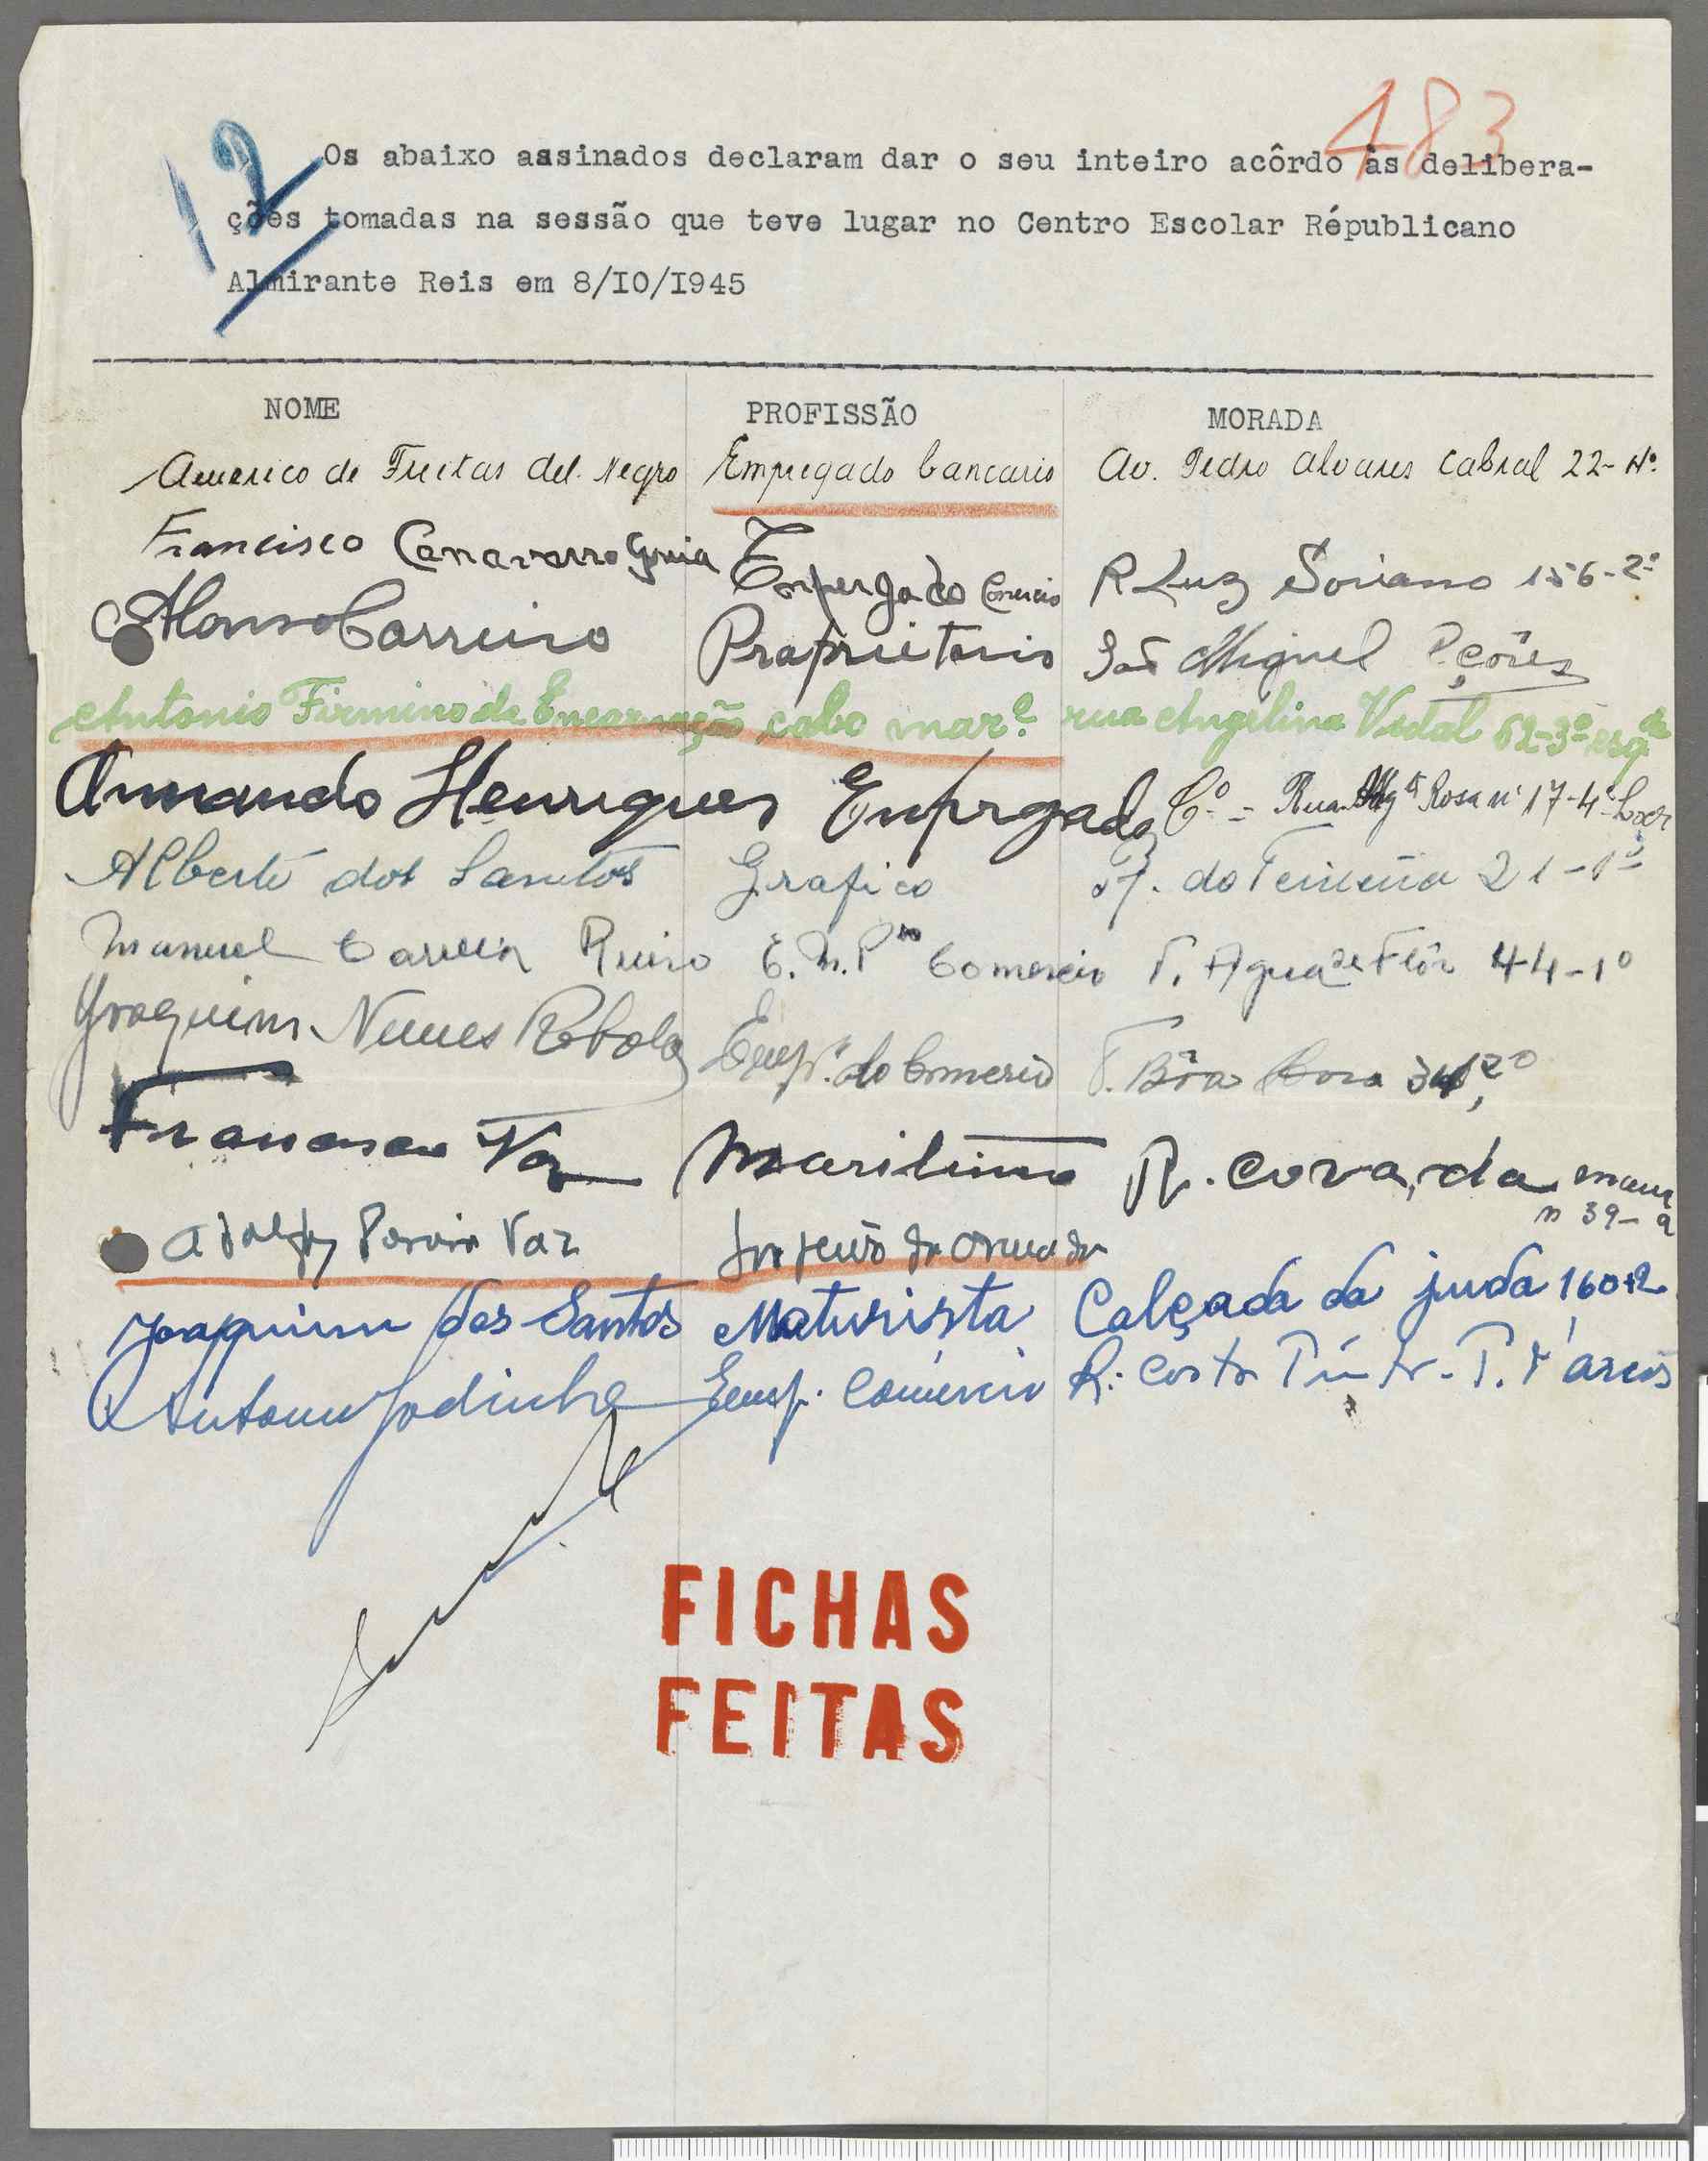 483
12
Os abaixo assinados declaram dar o seu inteiro acôrdo às delibera-
ções tomadas na sessão que teve lugar no Centro Escolar Républicano
Almirante Reis em 8/IO/I945
NOME PROFISSÃO MORADA
Americo de Freitas del. Negro Empregado bancario Av. Pedro Alvares Cabral 22-4º
Francisco Canavarro Empergado Comercio R Luz Soriano 156-2º
Afonso Carreiro Proprietario São Miguel Açôres
Antonio Firmino da Encarnação cabo marº. rua Angelina Vidal 62-3º esqº
Armando Henriques Enprgado Cº - Rua Rosa nº 17-4º
Alberto dos Santos Grafico T. do Teixeira 21-1º
Manuel Correia Comercio T. Agua de Flôr 44-1º
Joaquim Nunes Rebola Empº. do Comercio T. Bôa Hora
Francisco Vaz Maritimo R. Cova, da moura
n 39-
Adolfo Vaz
Joaquim dos Santos Maturista Calçada da juda 160
Antonio Godinho Emp. Comércio R: Costa Pinto - P. d'Arcos
FICHAS
FEITAS